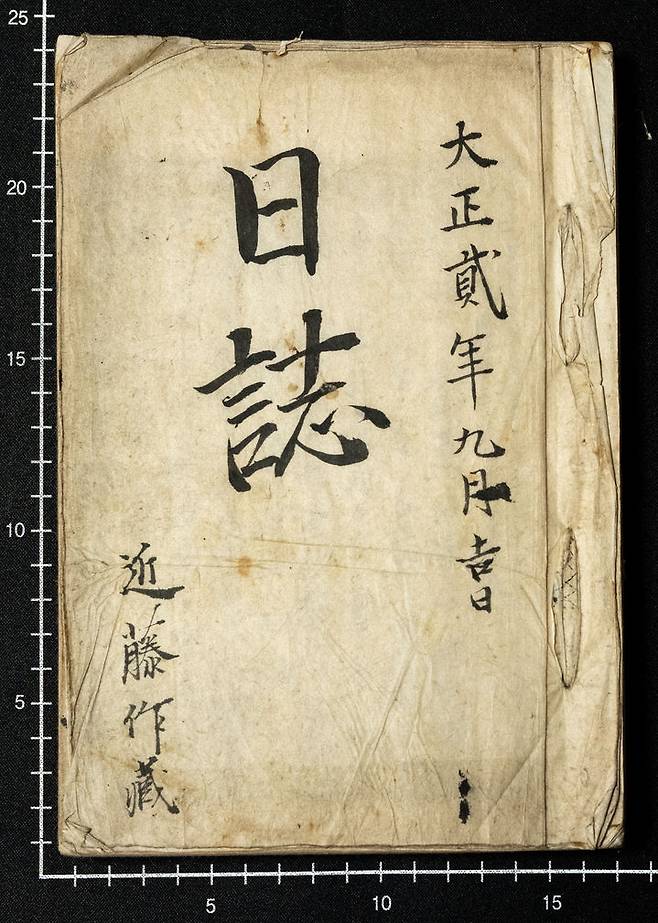 大正貳年九月吉日
日誌
近藤作藏
25
20
15
10
5
5
10
15